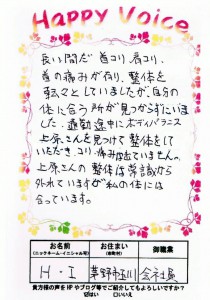 Happy Voice
長い間だ 首コリ、肩コリ、
首の痛みが有り、整体を
転々としていましたが、自分の
体に合う所が見つからずにいま
した、通勤途中にボディバランス
上原さんを見つけて整体をして
いただき、コリ、痛みが出ていません。
上原さんの整体は常識から
外れていますが私の体には
合っています。
お名前 お住まい 御職業
(ニックネーム・イニシャル可) (市町村)
H・I 茅野市玉川 会社員
貴方様の声をHPやブログ等でご紹介してもよろしいですか?
☑はい □いいえ